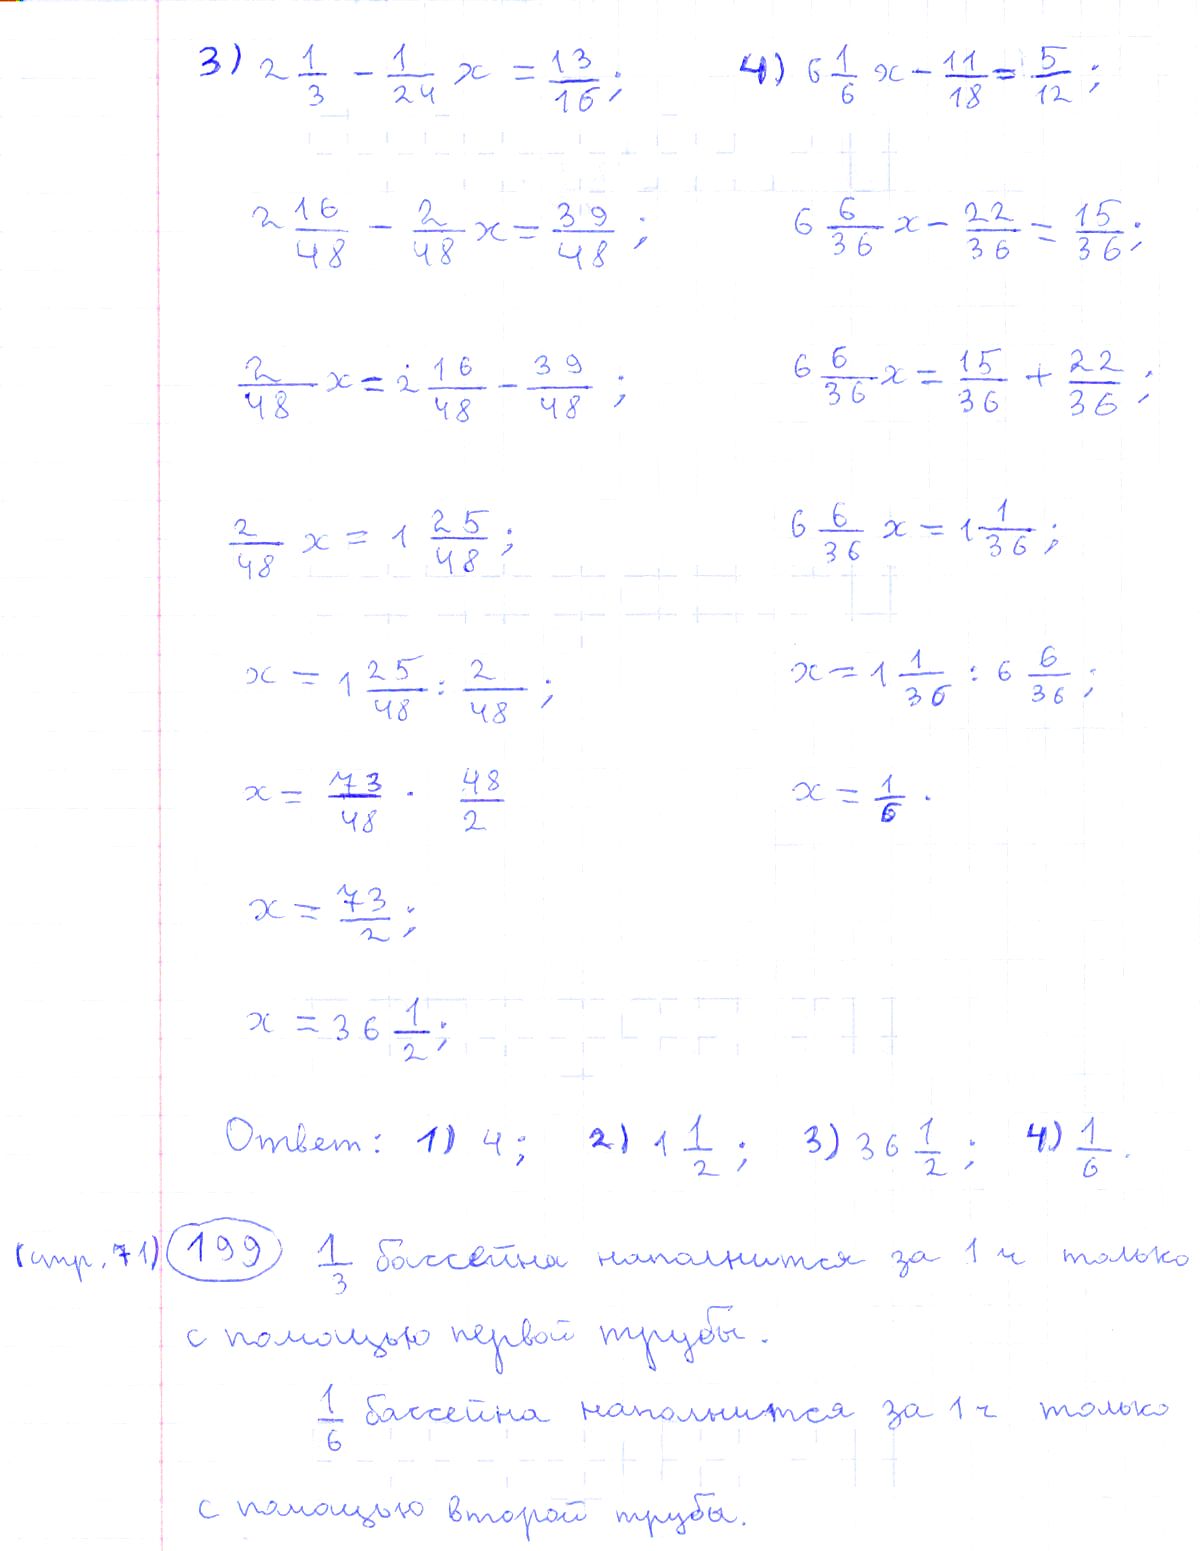 3) 2 1/3 − 1/24 x = 13/16;
2 16/48 − 2/48 x = 39/48;
2/48 x = 2 16/48 − 39/48;
2/48 x = 1 25/48;
x = 1 25/48 : 2/48;
x = 73/48 · 48/2
x = 73/2;
x = 36 1/2;
4) 6 1/6 x − 11/18 = 5/12;
6 6/36 x − 22/36 = 15/36;
6 6/36 x = 15/36 + 22/36;
6 6/36 x = 1 1/36;
x = 1 1/36 : 6 6/36;
x = 1/6.
Ответ: 1) 4; 2) 1 1/2; 3) 36 1/2; 4) 1/6.
(стр. 71) 199 1/3 бассейна наполнится за 1 ч только
с помощью первой трубы.
1/6 бассейна наполнится за 1 ч только
с помощью второй трубы.